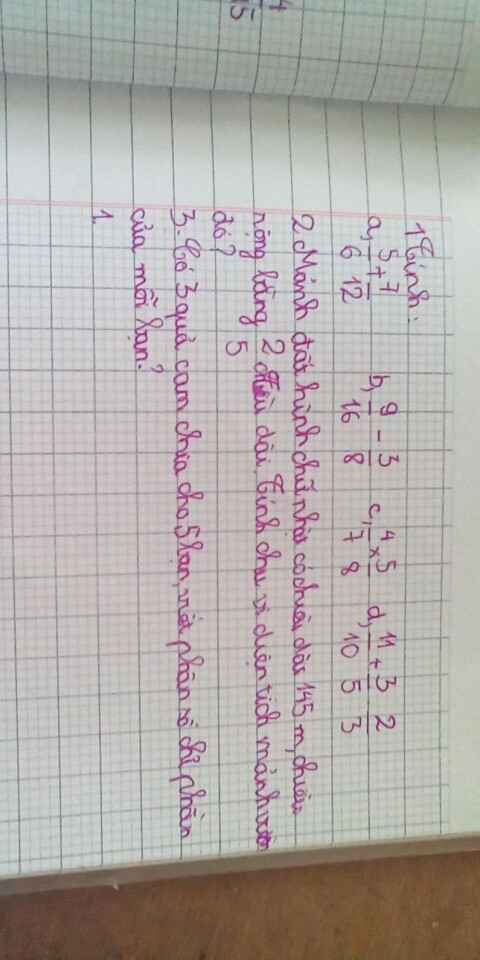 4/15
1 Tính:
a, 5/6 + 7/12 b, 9/16 - 3/8 c, 4/7 × 5/8 d, 11/10 + 3/5 2/3
2. Mảnh đất hình chữ nhật có chiều dài 145 m, chiều
rộng bằng 2/5 chiều dài. Tính chu vi diện tích mảnh vườn
đó?
3. Có 3 quả cam chia cho 5 bạn, viết phân số chỉ phần
của mỗi bạn?
1.